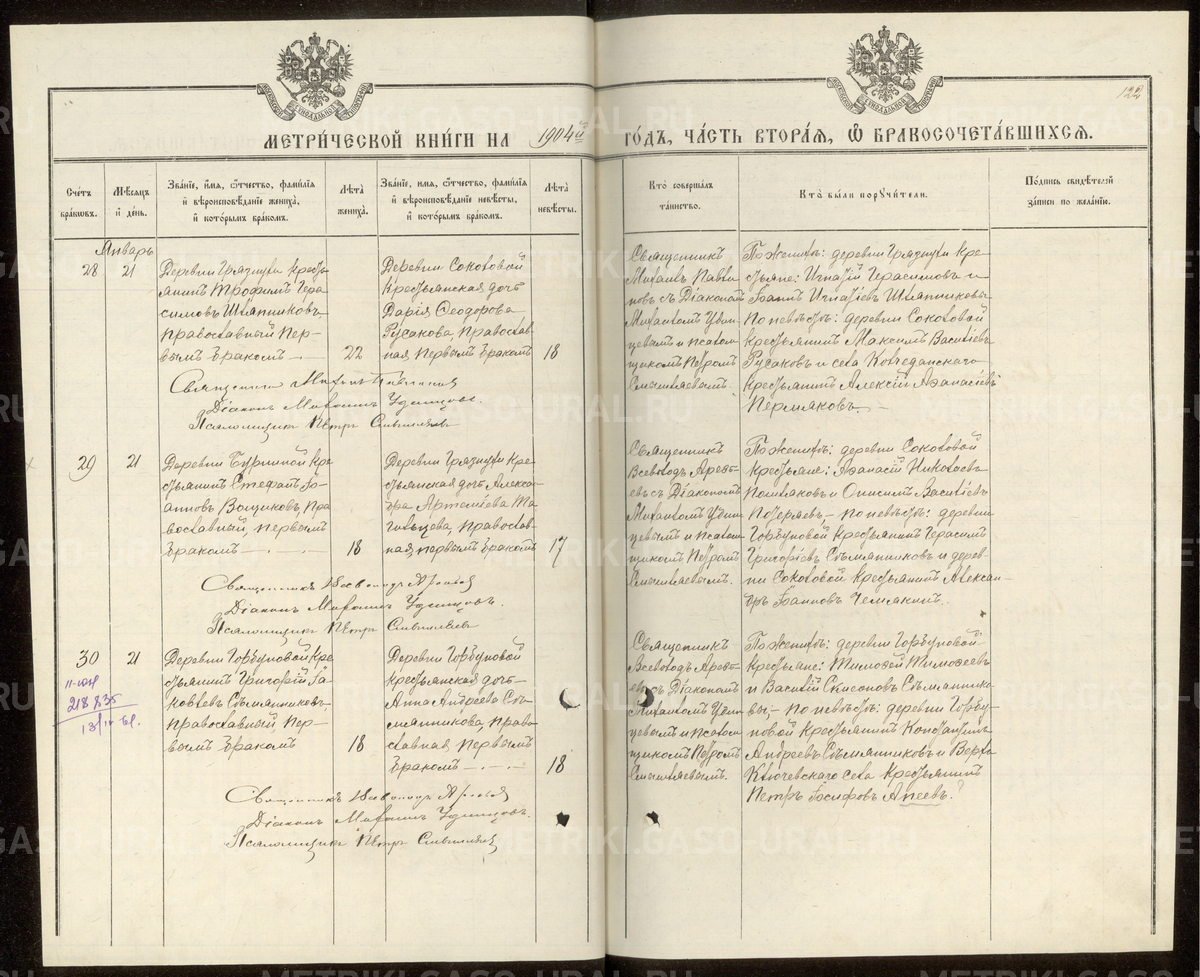 122
МЕТРИ́ЧЕСКОЙ КНИ́ГИ НА 1904й ГО́ДЪ, ЧА́СТЬ ВТОРА́Я, Ѿ БРАКОСОЧЕТА́ВШИХСЯ.
Сче́тъ бра́ковъ.
Мѣ́сяцъ и́ де́нь.
Зва́нїе, и́мя, ѻ҆́тчество, фами́лїя и́ вѣроисповѣ́данїе жениха̀, и́ кото́рымъ бра́комъ.
Лѣ́та жениха̀.
Зва́нїе, и́мя, ѻ҆́тчество, фами́лїя и́ вѣроисповѣ́данїе невѣ́сты, и́ кото́рымъ бра́комъ.
Лѣ́та невѣ́сты.
Кто̀ соверша́лъ та́инство.
Кто̀ бы́ли поручи́тели.
По́дпись свидѣ́телей за́писи по жела́нїю.
Январь
28
21
Деревни Грязнухи кресть-
янинъ Трофимъ Гера-
симовъ Шляпниковъ,
православный, Пер-
вымъ бракомъ
22
Деревни Соколовой
Крестьянская дочь
Дарія Ѳеодорова
Русакова, Православ-
ная Первымъ бракомъ
18
Священникъ
Михаилъ
съ Діакономъ
Михаиломъ Удин-
цевымъ и псалом-
щикомъ Петромъ
Смышляевымъ.
По женихѣ: деревни Грязнухи Кре-
стьяне: Игнатій Герасимовъ и
Іоаннъ Игнатіевъ Шляпниковы
По невѣстѣ: деревни Соколовой
Крестьянинъ Максимъ Василіевъ
Русаковъ и села Колчеданскаго
Крестьянинъ Алексій Аѳанасіевъ
Пермяковъ.
Священникъ Михаилъ
Діаконъ Михаилъ Удинцовъ.
Псаломщикъ Петръ Смышляевъ
29
21
Деревни Бурниной Кре-
стьянинъ Стефанъ Іо-
анновъ Вощиковъ, Пра-
вославный, Первымъ
бракомъ
18
Деревни Грязнухи Кре-
стьянская дочь Алексан-
дра Артеміева Та-
гильцова, Православ-
ная первымъ бракомъ
17
Священникъ
Всеволодъ Арефь-
евъ съ Діакономъ
Михаиломъ Удин-
цевымъ и псалом-
щикомъ Петромъ
Смышляевымъ.
По женихѣ: деревни Соколовой
Крестьяне: Аѳанасій Николаевъ
Пошляковъ и Онисимъ Василіевъ
Потеряевъ, – по невѣстѣ: деревни
Горбуновой Крестьянинъ Герасимъ
Григоріевъ Съмянниковъ и дерев-
ни Соколовой Крестьянинъ Алексан-
дръ Іоанновъ
Священникъ Всеволодъ Арефьевъ
Діаконъ Михаилъ Удинцовъ.
Псаломщикъ Петръ Смышляевъ
30
21
Деревни Горбуновой Кре-
стьянинъ Григорій Іа-
ковлевъ Съмянниковъ,
Православный, Пер-
вымъ бракомъ
18
Деревни Горбуновой
Крестьянская дочь
Анна Андреева Съ-
мянникова, Право-
славная Первымъ
бракомъ
18
Священникъ
Всеволодъ Арефь-
евъ съ Діакономъ
Михаиломъ Удин-
цевымъ и псалом-
щикомъ Петромъ
Смышляевымъ.
По женихѣ: деревни Горбуновой
Крестьяне: Тимофей Тимофеевъ
и Василій Съмяннико-
вы, – по невѣстѣ: деревни Горбу-
новой Крестьянинъ Константинъ
Андреевъ Съмянниковъ и Верхо
Ключевскаго села Крестьянинъ
Петръ Іосифовъ Апеевъ.?
Священникъ Всеволодъ Арефьевъ
Діаконъ Михаилъ Удинцовъ.
Псаломщикъ Петръ Смышляевъ
METRIKI.GASO-URAL.RU